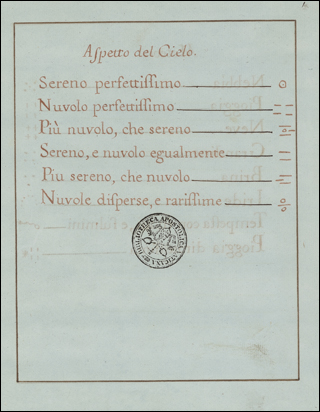 Aspetto del Cielo.
Sereno perfettissimo
Nuvolo perfettissimo
Più nuvolo, che sereno
Sereno, e nuvolo egualmente
Piu sereno, che nuvolo
Nuvole disperse, e rarissime
BIBLIOTHECA APOSTOLICA VATICANA